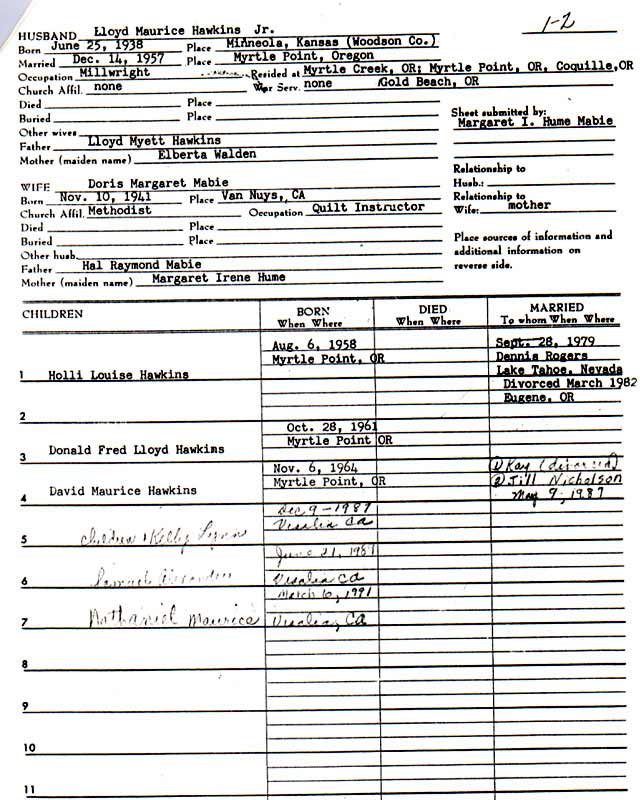 1-2
HUSBAND Lloyd Maurice Hawkins Jr.
Born June 25, 1938 Place Minneola, Kansas (Woodson Co.)
Married Dec. 14, 1957 Place Myrtle Point, Oregon
Occupation Millwright Resided at Myrtle Creek, OR; Myrtle Point, OR, Coquille, OR
Church Affil. none War Serv. none /Gold Beach, OR
Died Place
Buried Place
Sheet submitted by:
Margaret I. Hume Mabie
Other wives
Father Lloyd Myett Hawkins
Mother (maiden name) Elberta Walden
Relationship to
Husb.:
WIFE Doris Margaret Mabie
Born Nov. 10, 1941 Place Van Nuys, CA
Relationship to
Wife: mother
Church Affil. Methodist Occupation Quilt Instructor
Died Place
Buried Place
Place sources of information and
additional information on
reverse side.
Other husb.
Father Hal Raymond Mabie
Mother (maiden name) Margaret Irene Hume
CHILDREN BORN DIED MARRIED
When Where When Where To whom When Where
Aug. 6, 1958 Sept. 28, 1979
Myrtle Point, OR Dennis Rogers
1 Holli Louise Hawkins Lake Tahoe, Nevada
Divorced March 1982
Eugene, OR
2
Oct. 28, 1961
Myrtle Point OR
3 Donald Fred Lloyd Hawkins
Nov. 6, 1964 1) Kay (divorced)
4 David Maurice Hawkins Myrtle Point, OR 2) Jill Nicholson
May 9, 1987
Dec 9 - 1987
Visalia Ca
5 Children Kelly Lynn
June 21,
6 Samuel Visalia Ca
March 10, 1991
7 Nathaniel Maurice Visalia, CA
8
9
10
11